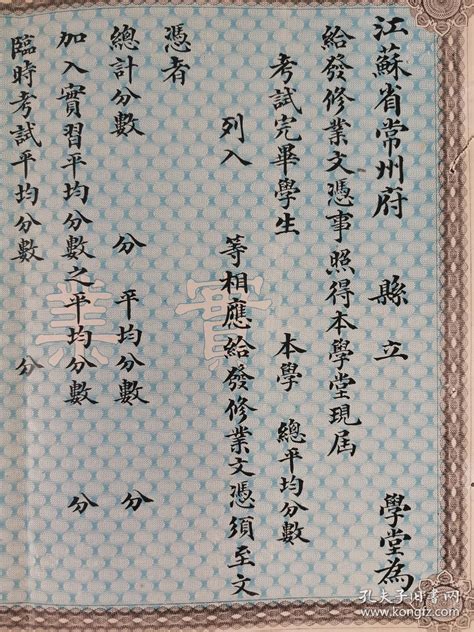 江蘇省常州府 縣立 學堂為
給發修業文憑事照得本學堂現屆
考試完畢學生 本學 總平均分數
列入 等相應給發修業文憑須至文
憑者
總計分數 分 平均分數 分
加入實習平均分數之平均分數 分
臨時考試平均分數 分
實業
孔夫子旧书网
www.kongfz.com